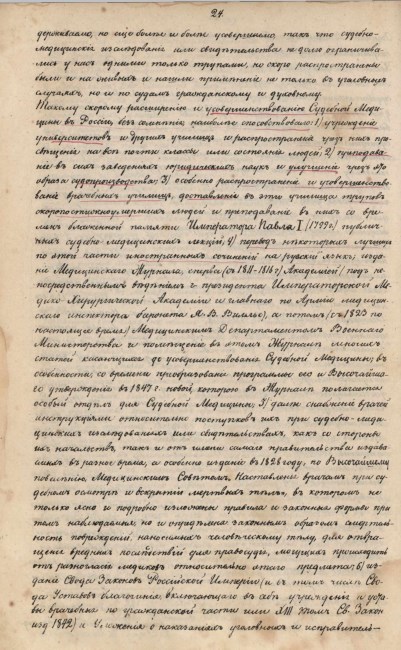 24.
держиваемо, но еще более и более усовершаемо, так что судебно-
медицинские изследования или свидетельства не долго ограничива-
лись у нас одними только трупами, но скоро распространены
были и на живых и нашли применение не только в уголовных
случаях, но и по судам гражданскому и духовному.
Такому скорому расширению и усовершенствованию Судебной Меди-
цины в России, без сомнения наиболее способствовало: 1) учреждение
университетов и других училищ и распространение чрез них про-
свещения на все почти классы или состояния людей; 2) преподава-
ние в сих заведениях юридических наук и улучшение чрез то
образа судопроизводства; 3) особенно распространение и усовершенство-
вание врачебных училищ, доставление в эти училища трупов
скоропостижно умерших людей и преподавание в них со вре-
мен блаженной памяти Императора Павла I (1799 г.) публич-
ных судебно-медицинских лекций; 4) перевод некоторых лучших
по этой части иностранных сочинений на русский язык; изда-
ние Медицинского Журнала, сперва (с 1811-1816 г.) Академией (под не-
посредственным ведением г. президента Императорской Ме-
дико-Хирургической Академии и главного по Армии медицин-
ского инспектора баронета Я. В. Виллие), а потом (с 1823 по
настоящее время) Медицинским Департаментом Военного
Министерства и помещение в этом Журнале многих
статей касающихся до усовершенствования Судебной Медицины; в
особенности, со времени преобразования программы его и Высочайша-
го утверждения в 1847 г. новой, которою в Журнале полагается
особый отдел для Судебной Медицины; 5) далее снабжение врачей
инструкциями относительно поступков их при судебно-меди-
цинских изследованиях или свидетельствах, как со стороны
их начальств, так и от имени самого правительства издава-
емых в разное время, а особенно издание в 1828 году, по Высочайшему
повелению, Медицинским Советом, Наставления врачам при су-
дебном осмотре и вскрытии мертвых тел, в котором не
только ясно и подробно изложены правила и законные формы при
том наблюдаемые, но и определена законным образом смертель-
ность повреждений, наносимых человеческому телу, для отвра-
щения вредных последствий для правосудия, могущих произходить
от разногласия медиков относительно этого предмета; 6) из-
дание Свода Законов Российской Империи (и в том числе Сво-
да Уставов благочиния включающего в себе учреждения и уста-
вы врачебные по гражданской части или XIII том Св. Закон.
изд. 1842) и Уложения о наказаниях уголовных и исправитель-